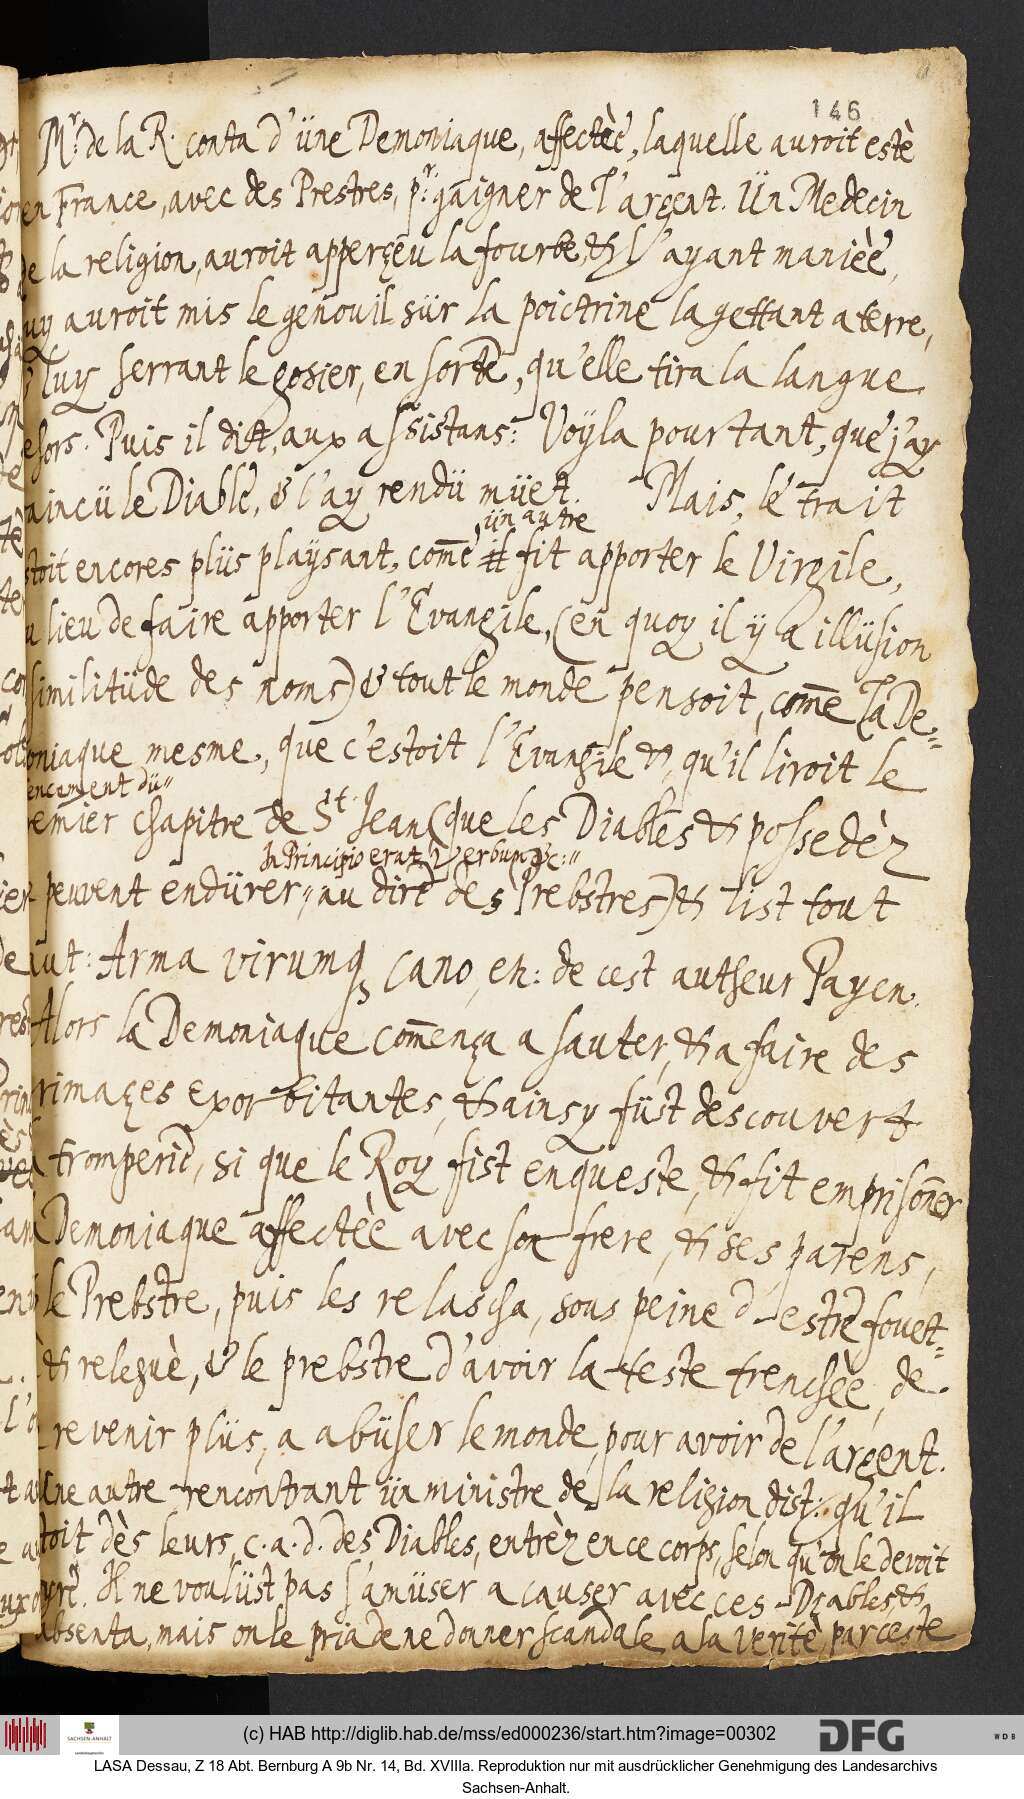 146
Mr. de la R. conta d'üne Demoniaque, affectèe, laquelle auroit estè
en France, avec des Prestres, pr. gaigner de l'argent. Ün Medecin
de la religion, auroit apperçeu la fourbe, & l'ayant manièe,
luy auroit mis le genouil sür la poictrine la gettant a terre,
luy serrant le gosier, en sorte, qu'elle tira la langue
esors. Puis il dit, aux assistans: Voyla pourtant, que j'ay
vaincü le Diable, & l'ay rendü müet. Mais, le trait
ün autre
estoit encores plüs playsant, com̄e il fit apporter le Virgile,
au lieu de faire apporter l'Evangile, (en quoy il y a illüsion
similitüde des noms) & tout le monde pensoit, com̄e la De-
moniaque mesme, que c'estoit l'Evangile &, qu'il liroit le
encement dü
premier chapitre de St. Jean (que les Diables & possedèz
In Principio erat Verbum &c:
peuvent endürer, au dire des Prebstres) & list tout
haut: Arma virumq3 cano, en: de cest autheur Payen.
Alors la Demoniaque com̄ença a sauter, & a faire des
grimaçes exorbitantes, & ainsy füst descouvert
la tromperie, si que le Roy fist enqueste, & fit emprison̄er
Demoniaque affectèe avec son frere, & ses parens,
le Prebstre, puis les relascha, sous peine d'estre fouet-
& releguè, & le prebstre d'avoir la teste trenchèe, de
revenir plüs, a abüser le monde, pour avoir de l'argent.
Üne autre rencontrant ün ministre de la religion dist: qu'il
estoit dès leurs, c. a. d. des Diables, entrèz en ce corps, selon qu'on le devoit
. Il ne voulüst pas s'amüser a causer avec ces Diables, &
absenta, mais on le pria de ne donner scandale a la veritè, par ceste
(c) HAB http://diglib.hab.de/mss/ed000236/start.htm?image=00302
SACHSEN-ANHALT
DFG
WDB
LASA Dessau, Z 18 Abt. Bernburg A 9b Nr. 14, Bd. XVIIIa. Reproduktion nur mit ausdrücklicher Genehmigung des Landesarchivs
Sachsen-Anhalt.